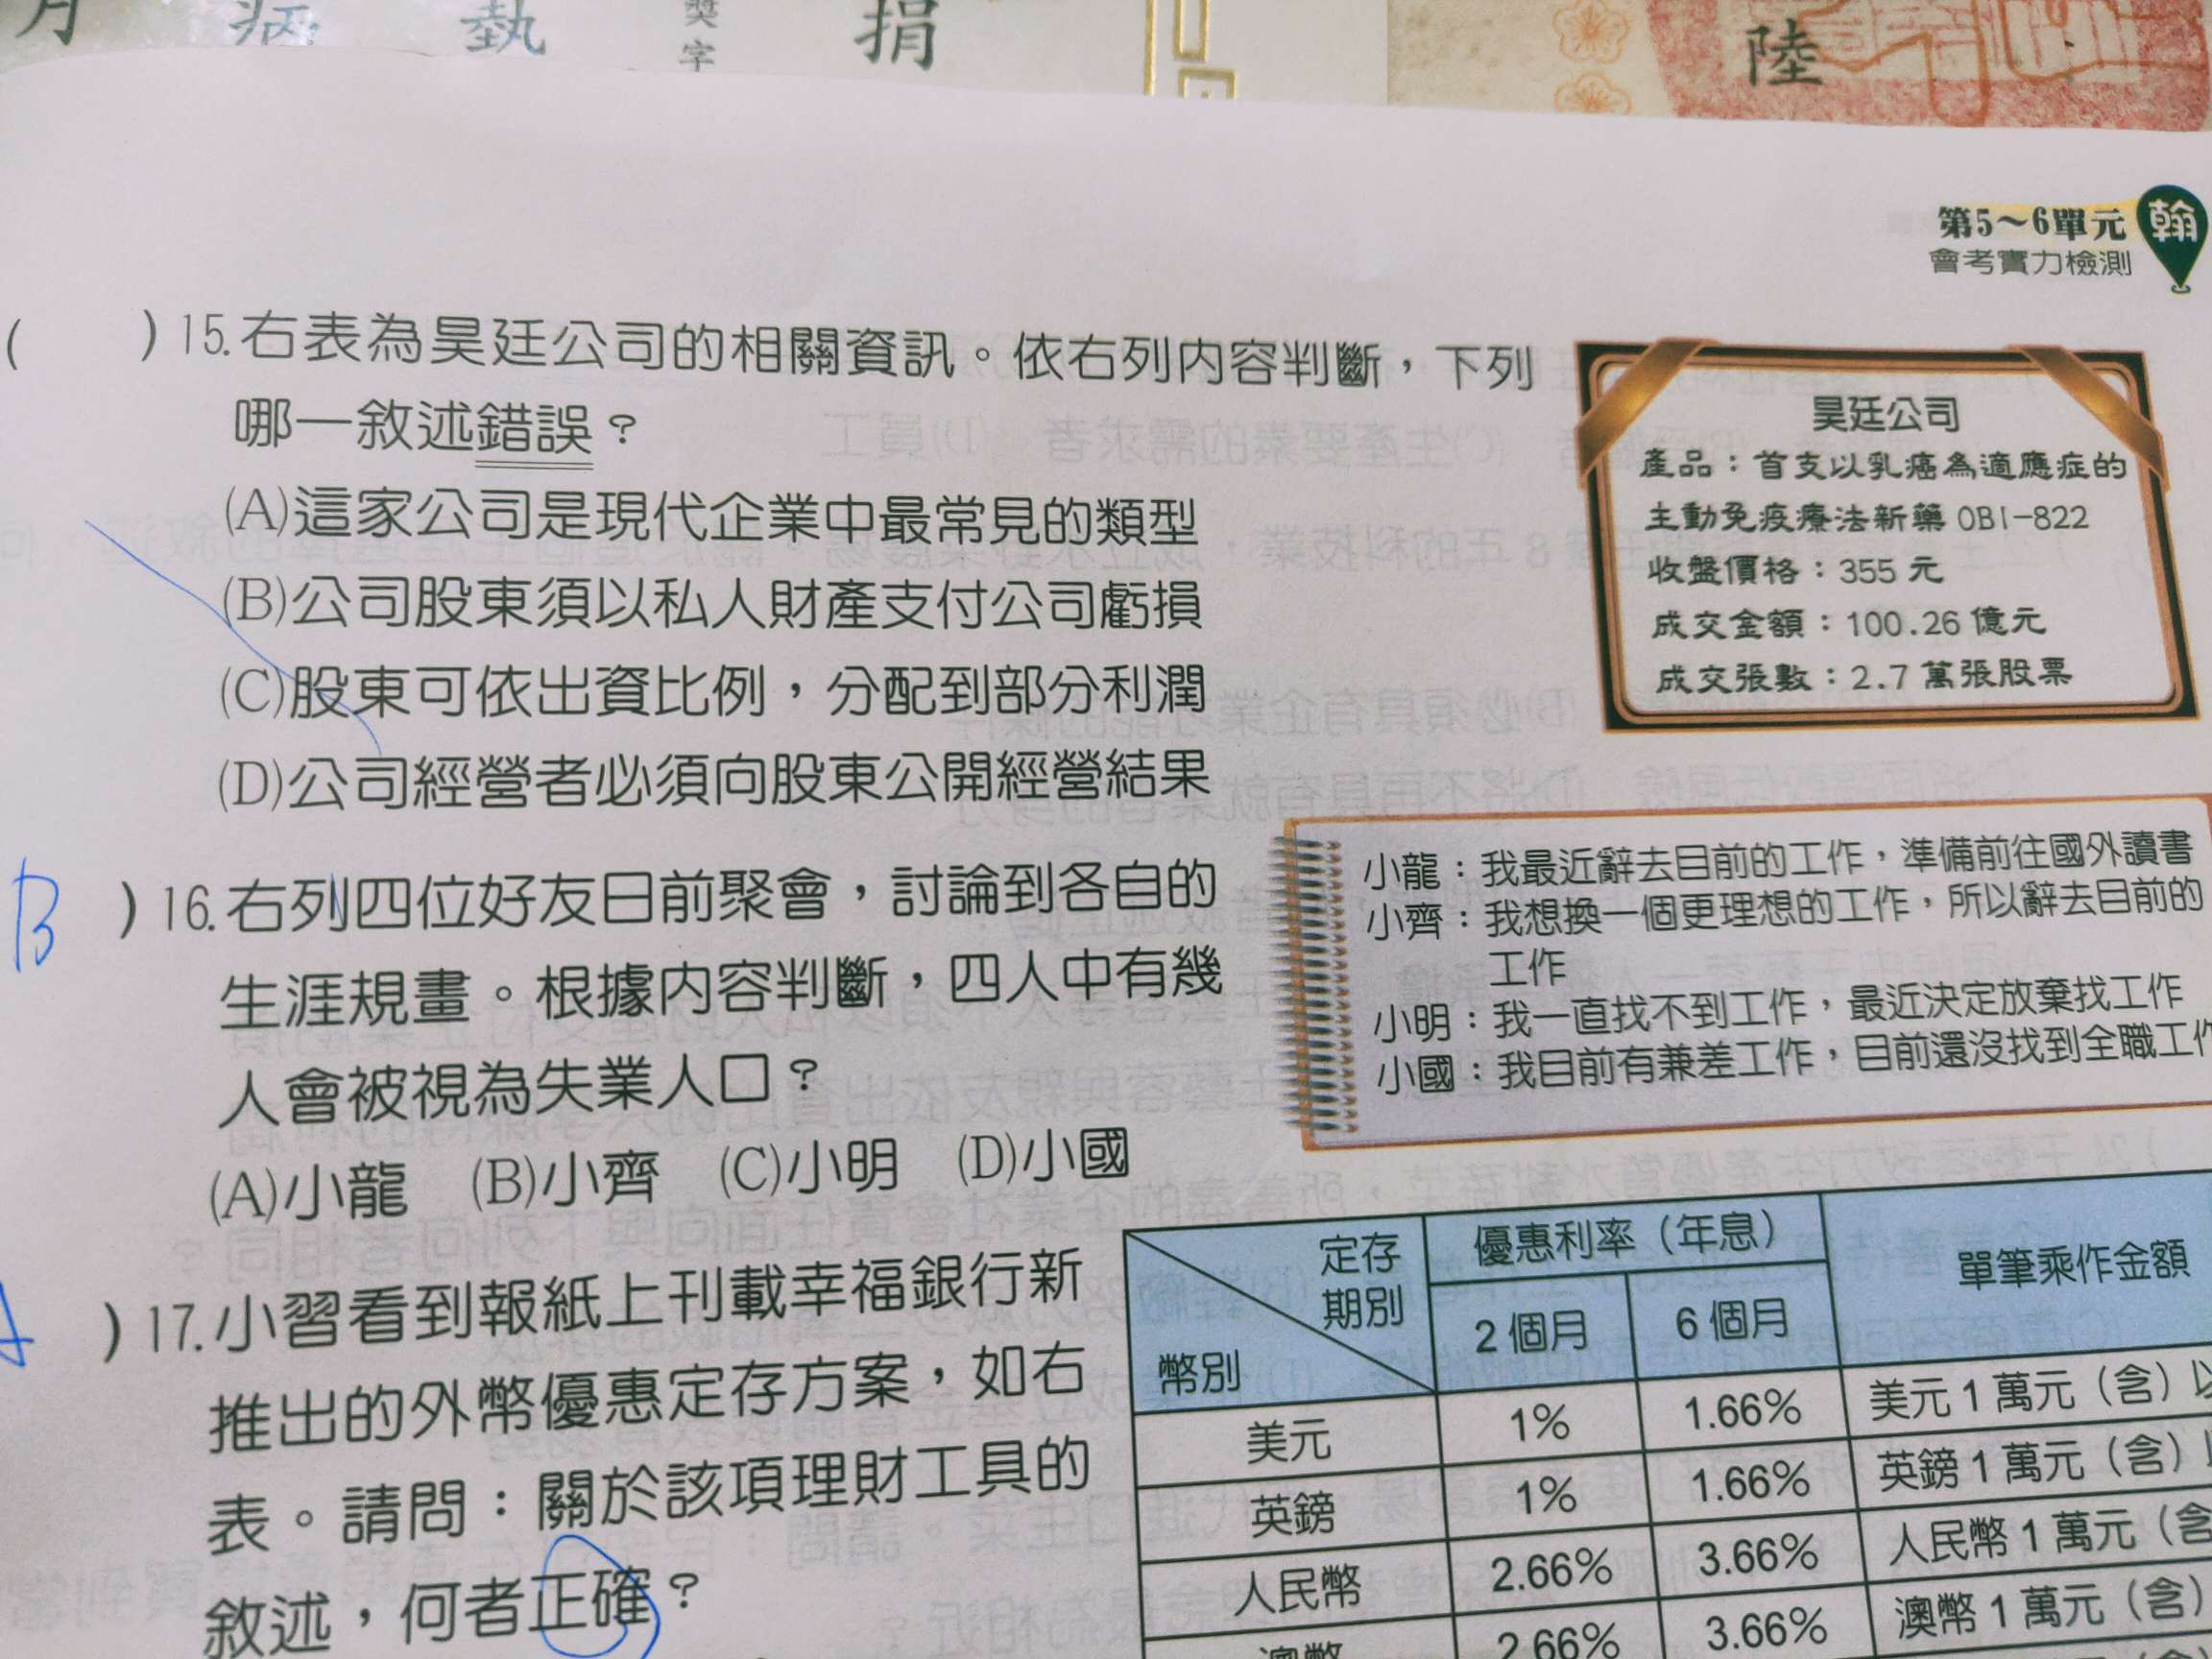 月
病
執
獎
字
捐
陸
第5～6單元
翰
會考實力檢測
( )15.右表為昊廷公司的相關資訊。依右列內容判斷，下列
哪一敘述錯誤？
(A)這家公司是現代企業中最常見的類型
(B)公司股東須以私人財產支付公司虧損
(C)股東可依出資比例，分配到部分利潤
(D)公司經營者必須向股東公開經營結果
昊廷公司
產品：首支以乳癌為適應症的
主動免疫療法新藥 OBI-822
收盤價格：355 元
成交金額：100.26 億元
成交張數：2.7 萬張股票
B )16.右列四位好友日前聚會，討論到各自的
生涯規畫。根據內容判斷，四人中有幾
人會被視為失業人口？
(A)小龍 (B)小齊 (C)小明 (D)小國
小龍：我最近辭去目前的工作，準備前往國外讀書
小齊：我想換一個更理想的工作，所以辭去目前的
工作
小明：我一直找不到工作，最近決定放棄找工作
小國：我目前有兼差工作，目前還沒找到全職工作
A )17.小習看到報紙上刊載幸福銀行新
推出的外幣優惠定存方案，如右
表。請問：關於該項理財工具的
敘述，何者正確？
定存期別 優惠利率（年息） 單筆乘作金額
幣別 2 個月 6 個月
美元 1% 1.66% 美元 1 萬元（含）以
英鎊 1% 1.66% 英鎊 1 萬元（含）
人民幣 2.66% 3.66% 人民幣 1 萬元（含
澳幣 2.66% 3.66% 澳幣 1 萬元（含）